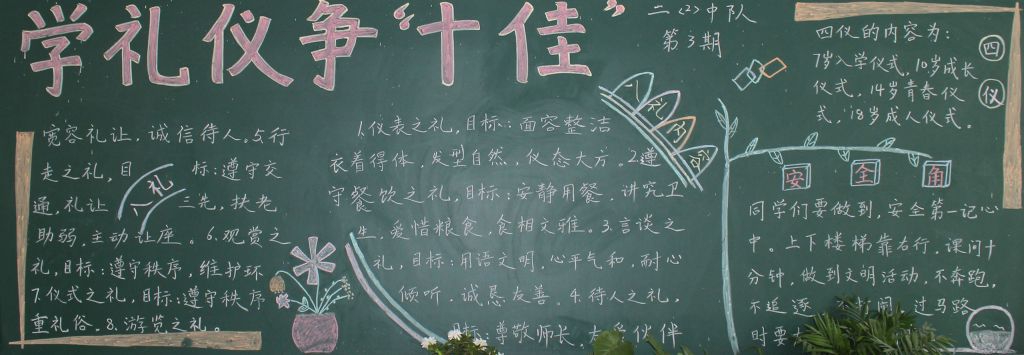 学礼仪争“十佳”
二(2)中队
第3期
四仪
四仪的内容为:
7岁入学仪式,10岁成长
仪式,14岁青春仪
式,18岁成人仪式。
八礼四仪
1.仪表之礼,目标:面容整洁
衣着得体,发型自然,仪态大方。2.遵
守餐饮之礼,目标:安静用餐,讲究卫
生,爱惜粮食,食相文雅。3.言谈之
礼,目标:用语文明,心平气和,耐心
倾听,诚恳友善。4.待人之礼,
目标:尊敬师长,友爱伙伴
宽容礼让,诚信待人。5.行
走之礼,目标:遵守交
通,礼让三先,扶老
助弱,主动让座。6.观赏之
礼,目标:遵守秩序,维护环
7.仪式之礼,目标:遵守秩序
重礼俗。8.游览之礼。
八礼
安全角
同学们要做到,安全第一记心
中。上下楼梯靠右行,课间十
分钟,做到文明活动,不奔跑,
不追逐打闹 过马路
时要